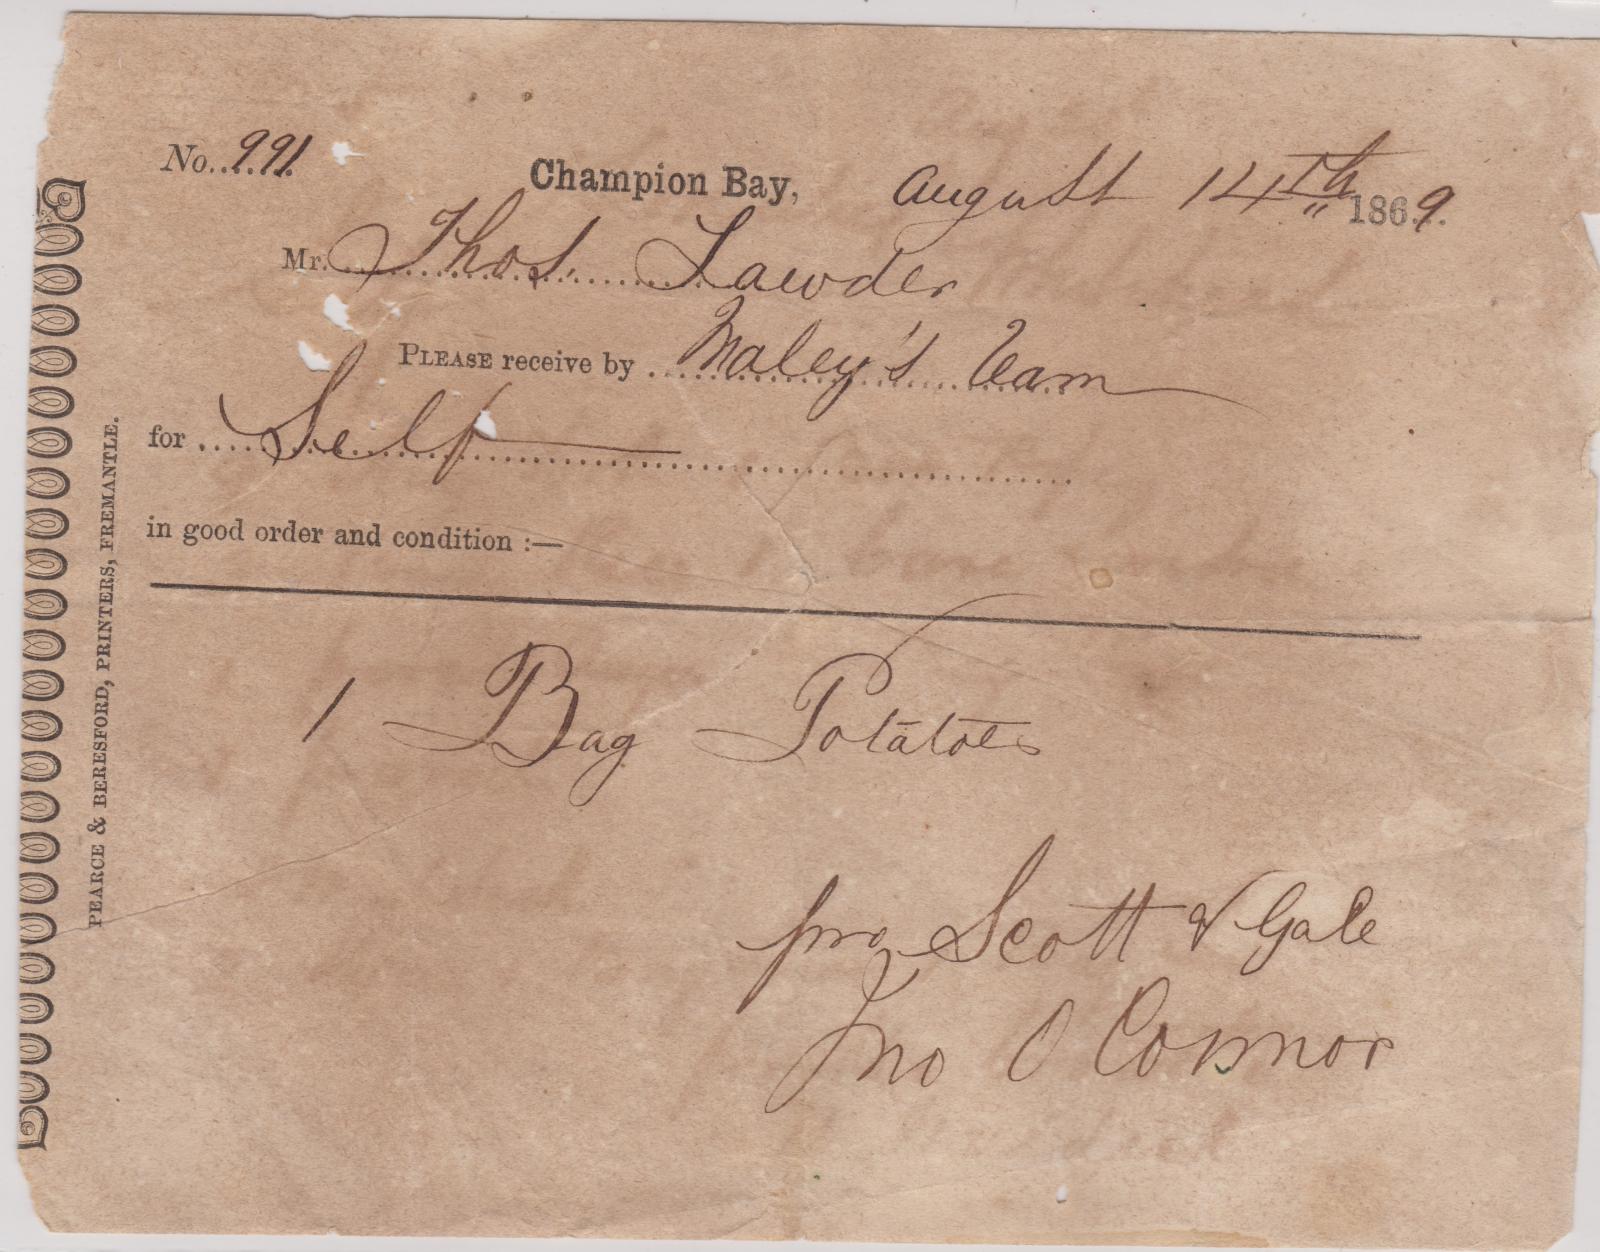 No. 991
Champion Bay, August 14th 1869.
Mr. Thos. Lawder
PLEASE receive by Maley's Team
for Self
in good order and condition :—
1 Bag Potatoes
pro Scott & Gale
Jno O Connor
PEARCE & BERESFORD, PRINTERS, FREMANTLE.